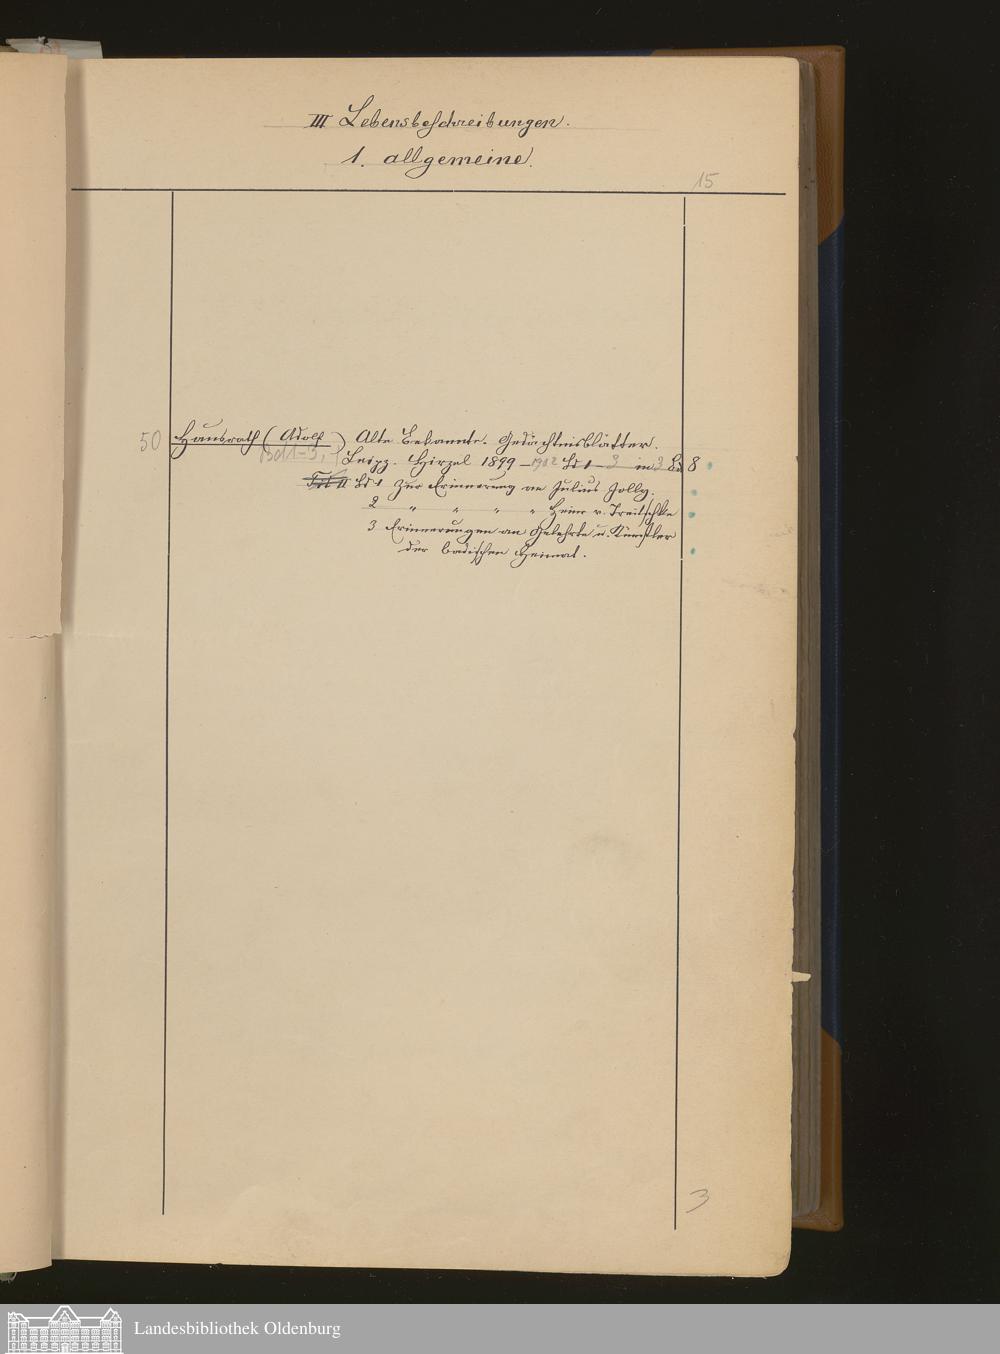 III Lebensbeschreibungen.
1. allgemeine.
15
50 Hausrath (Adolf) Alte Bekannte. Gedächtnisblätter.
Bd 1-3,
Leipz. Hirzel 1899-1902 Bd 1-3 in 3 Bd 8
Bd 1 Zur Erinnerung an Julius Jolly.
2 " " " " Heinr v. Treitschke
3 Erinnerungen an Gelehrte u. Künstler
der badischen Heimat.
3
Landesbibliothek Oldenburg